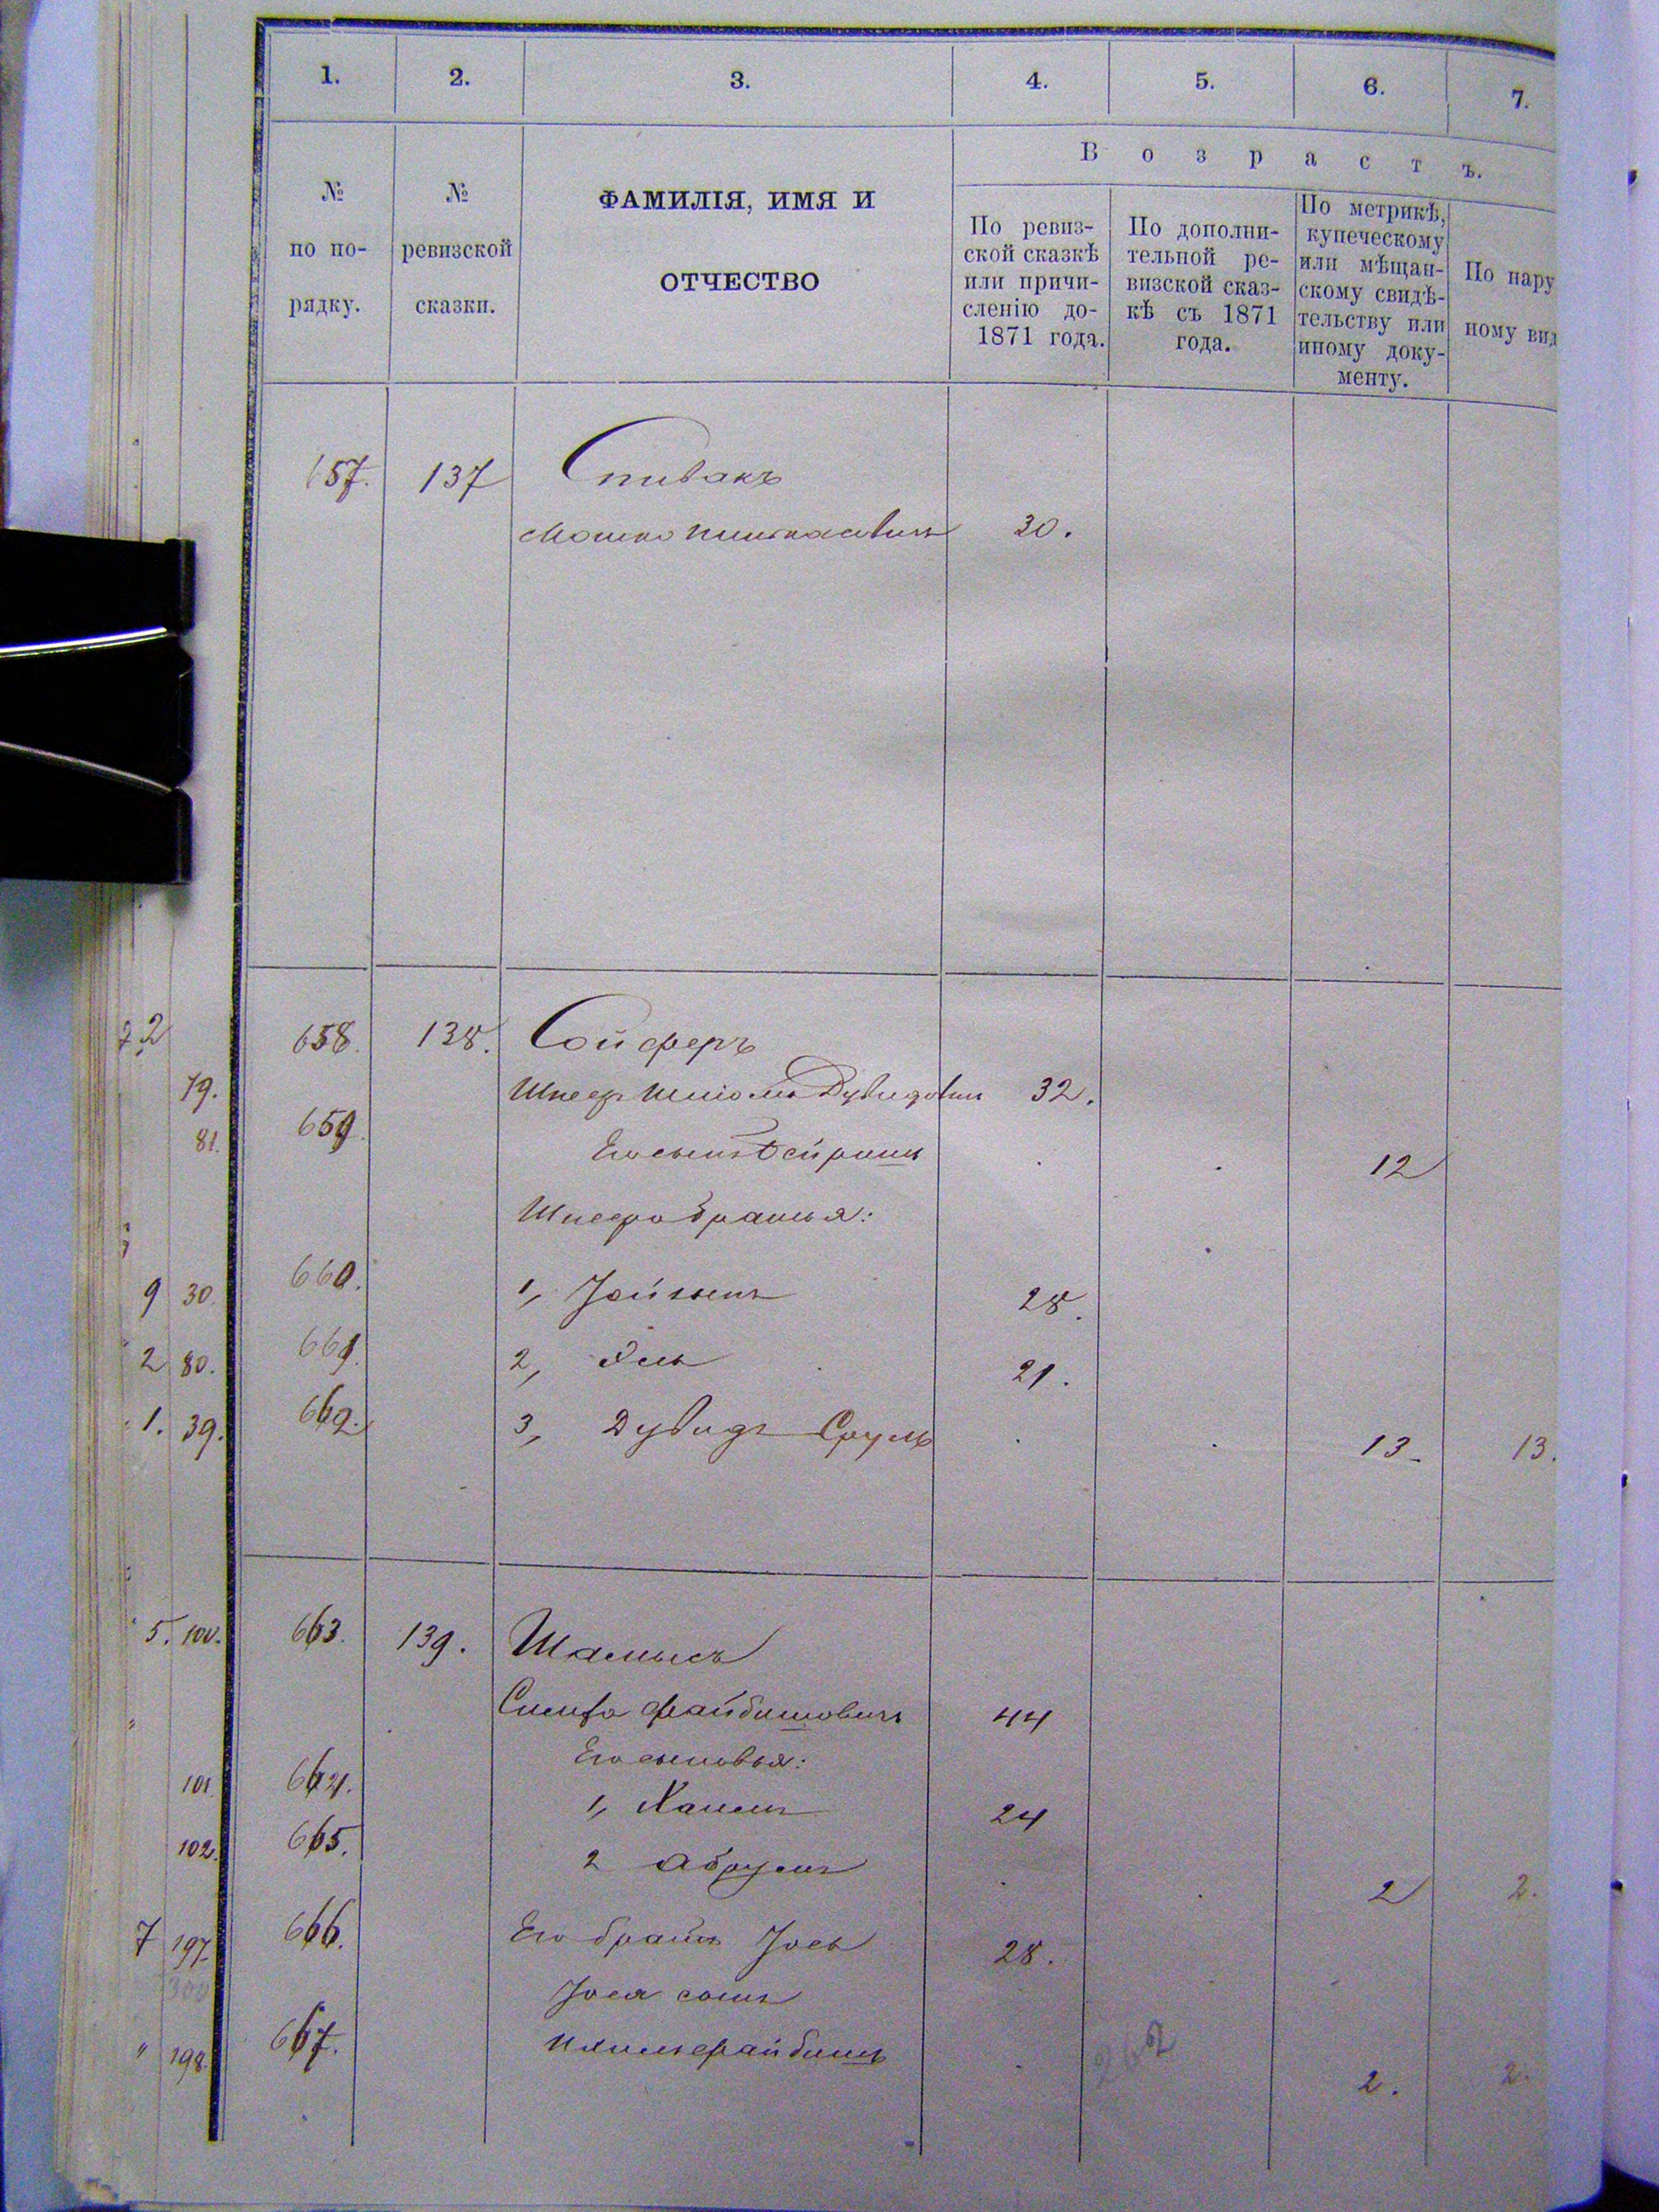 1. 2. 3. 4. 5. 6. 7.
Возрастъ.
№ по по-рядку.
№ ревизской сказки.
ФАМИЛІЯ, ИМЯ И
ОТЧЕСТВО
По ревиз-
ской сказкѣ
или причи-
сленію до-
1871 года.
По дополни-
тельной ре-
визской сказ-
кѣ съ 1871
года.
По метрикѣ,
купеческому
или мѣщан-
скому свидѣ-
тельству или
иному доку-
менту.
По нару
ному вид
657. 137 Спивакъ
Мошко Пинкасовичъ 30.
658. 138. Сойферъ
79. Шнеер Шліома Дувидовичъ 32.
81. 659. Его сынъ 12
Шнеера братья:
9 30. 660. 1, Зойвель 28.
2 80. 661. 2, 21.
1. 39. 662. 3, Дувидъ Сруль 13. 13.
5. 100. 663. 139. Шамысъ
Симха Файбишовичъ 44
Его сыновья:
101. 664. 1, 24
102. 665. 2 Абрумъ 2 2.
7 197. 666. Его братъ Іось 28.
300
Іося сынъ
" 198. 667. Файбишъ 2. 2.
262